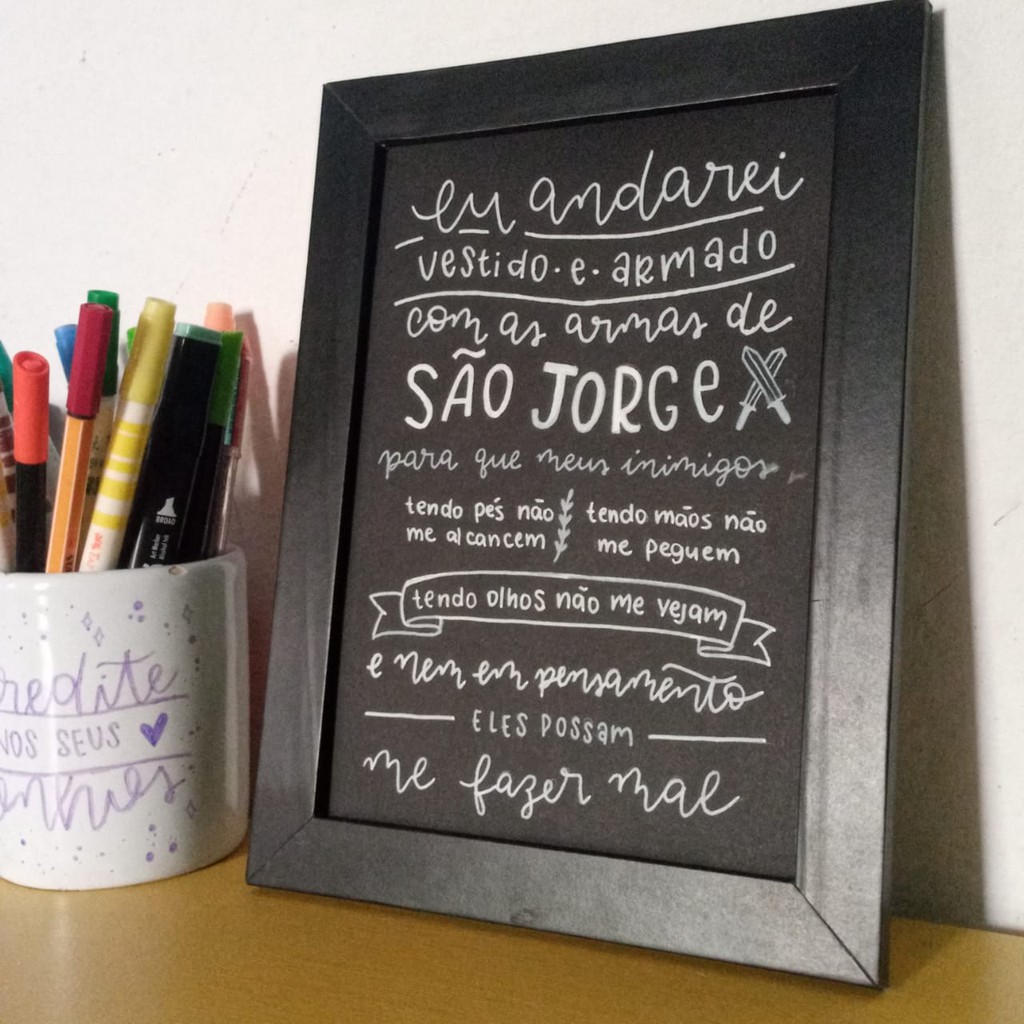 eu andarei
vestido · e · armado
com as armas de
SÃO JORGE
para que meus inimigos
tendo pés não
me alcancem
tendo mãos não
me peguem
tendo olhos não me vejam
e nem em pensamento
ELES POSSAM
me fazer mal
redite
NOS SEUS
BROAD